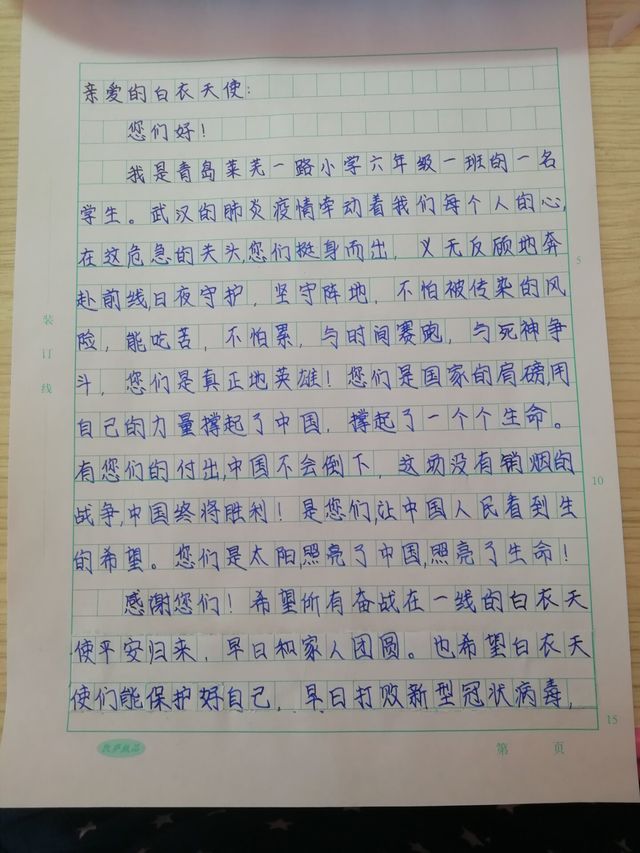 亲爱的白衣天使:
您们好!
我是青岛莱芜一路小学六年级一班的一名
学生。武汉的肺炎疫情牵动着我们每个人的心,
在这危急的关头,您们挺身而出,义无反顾地奔
赴前线,日夜守护,坚守阵地,不怕被传染的风
险,能吃苦,不怕累,与时间赛跑,与死神争
斗,您们是真正地英雄!您们是国家的肩磅,用
自己的力量撑起了中国,撑起了一个个生命。
有您们的付出,中国不会倒下,这场没有销烟的
战争,中国终将胜利!是您们,让中国人民看到生
的希望。您们是太阳,照亮了中国,照亮了生命!
感谢您们!希望所有奋战在一线的白衣天
使平安归来,早日和家人团圆。也希望白衣天
使们能保护好自己,早日打败新型冠状病毒,
装订线
5
10
15
第 页